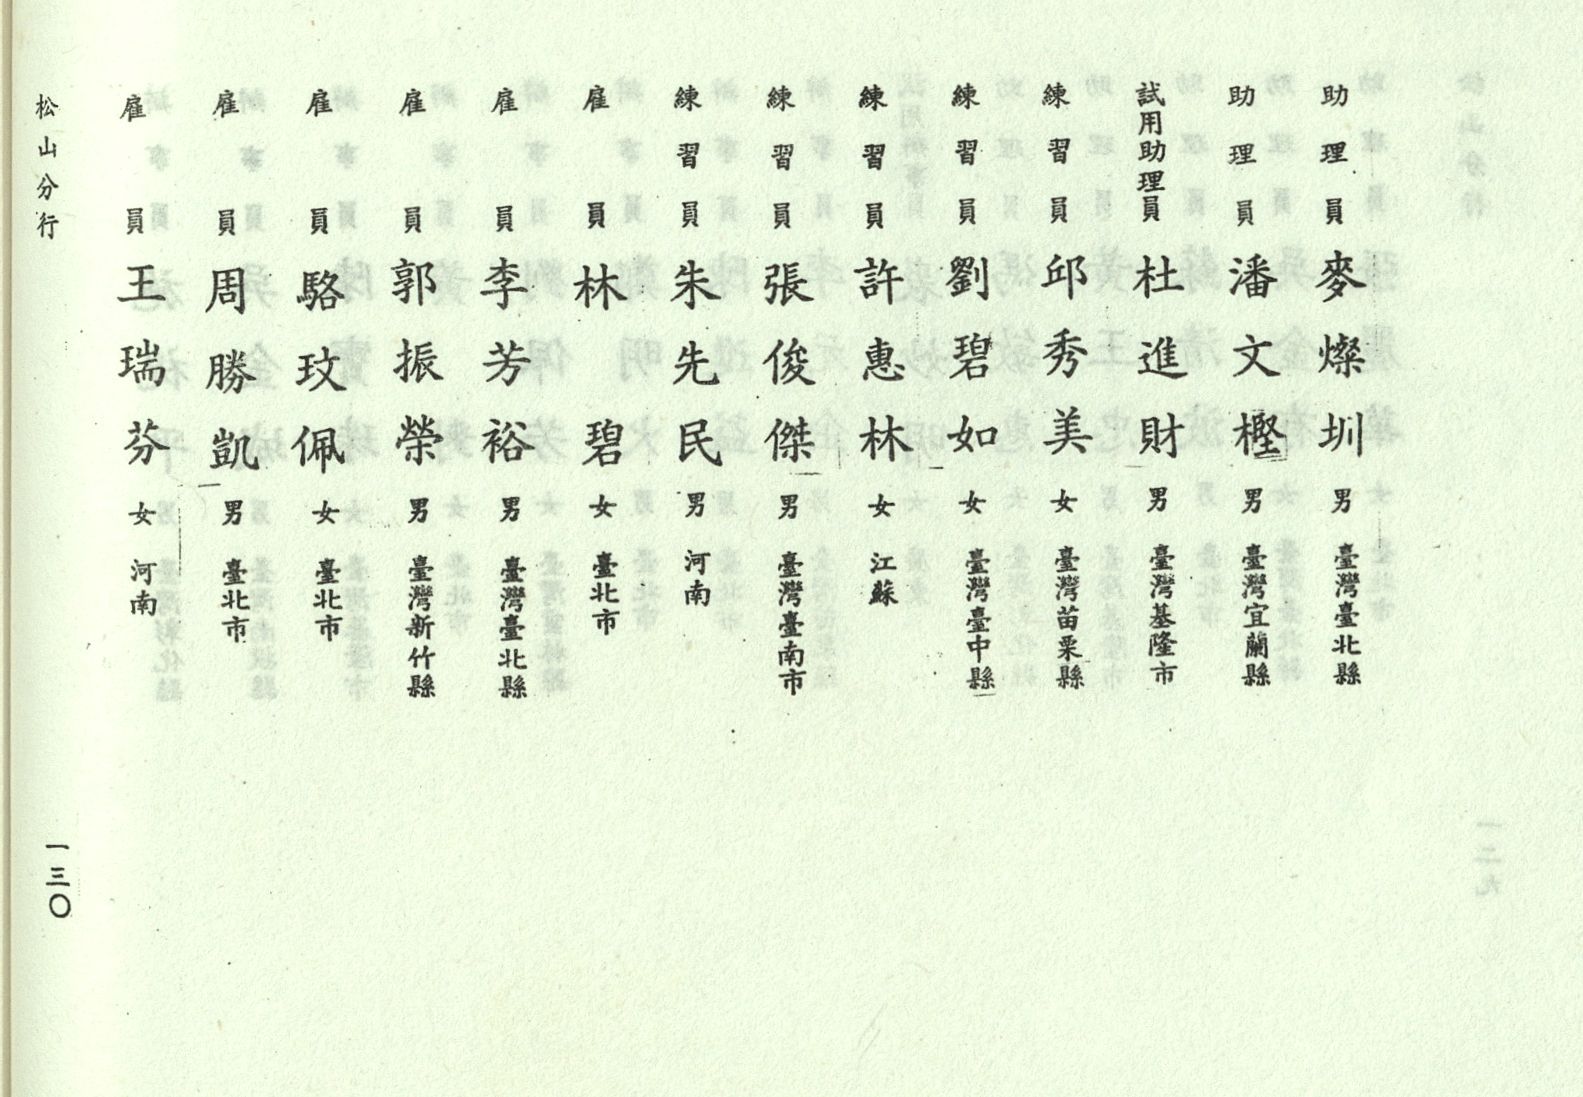 助理員 麥燦圳 男 臺灣臺北縣
助理員 潘文樫 男 臺灣宜蘭縣
試用助理員 杜進財 男 臺灣基隆市
練習員 邱秀美 女 臺灣苗栗縣
練習員 劉碧如 女 臺灣臺中縣
練習員 許惠林 女 江蘇
練習員 張俊傑 男 臺灣臺南市
練習員 朱先民 男 河南
雇員 林碧 女 臺北市
雇員 李芳裕 男 臺灣臺北縣
雇員 郭振榮 男 臺灣新竹縣
雇員 駱玟佩 女 臺北市
雇員 周勝凱 男 臺北市
雇員 王瑞芬 女 河南
松山分行
一三〇